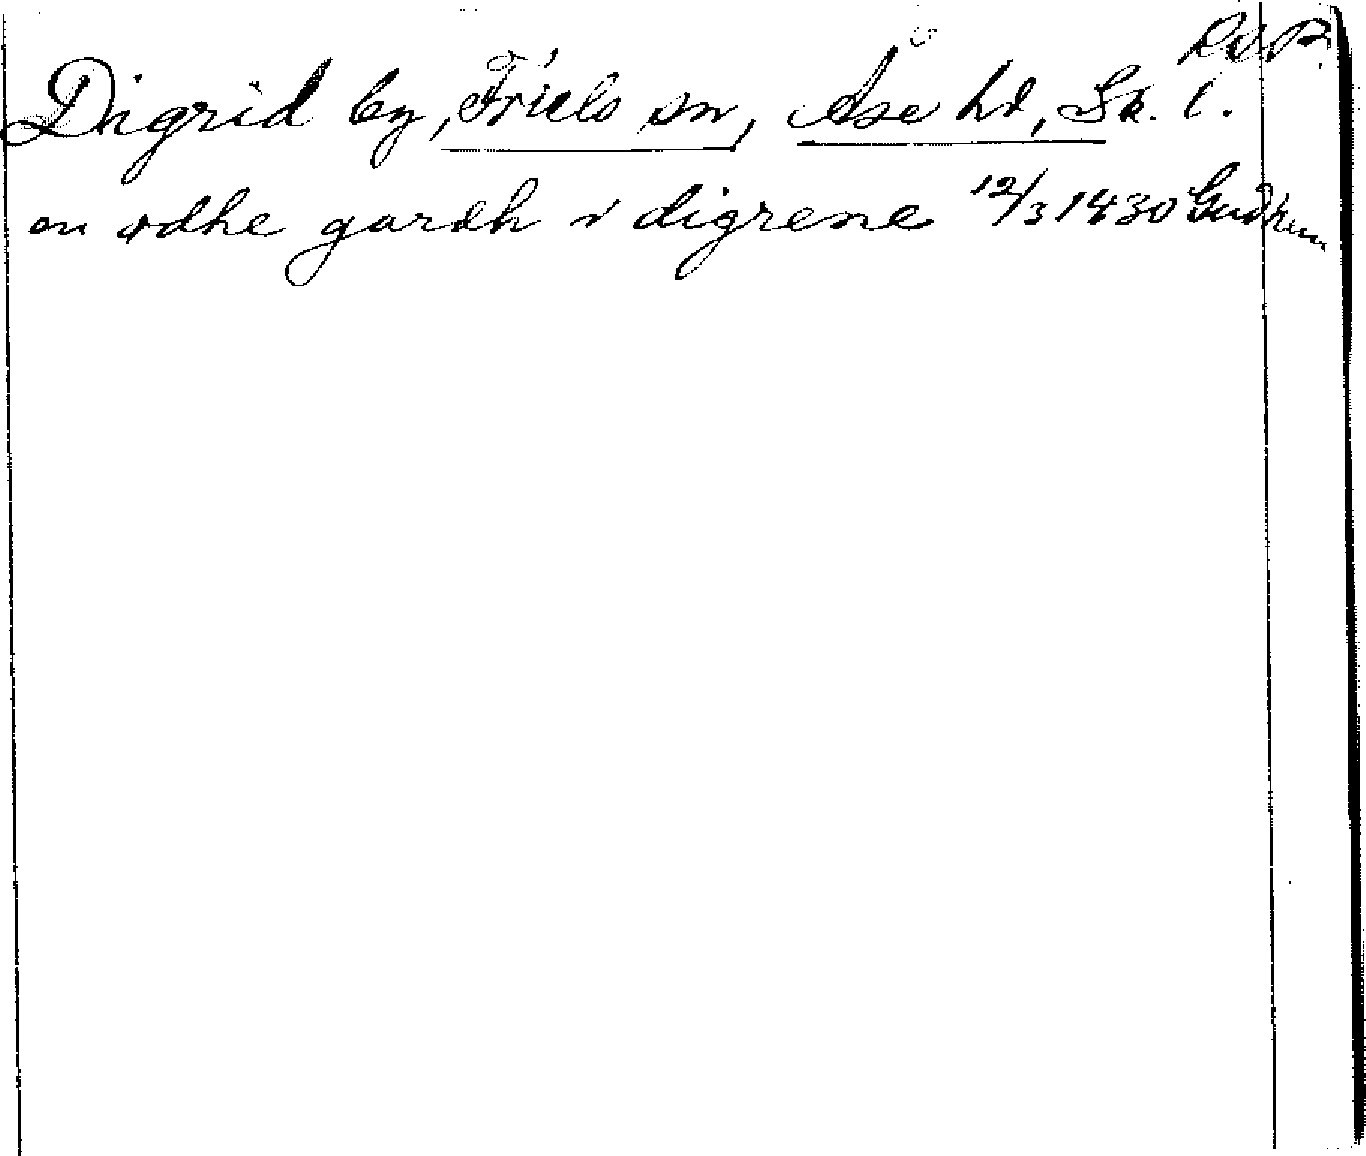 RAP.
Digrid by, Friels sn, Åse hd, Sk. l.
en ødhe gardh i digrene 12/3 1430 Gudhem